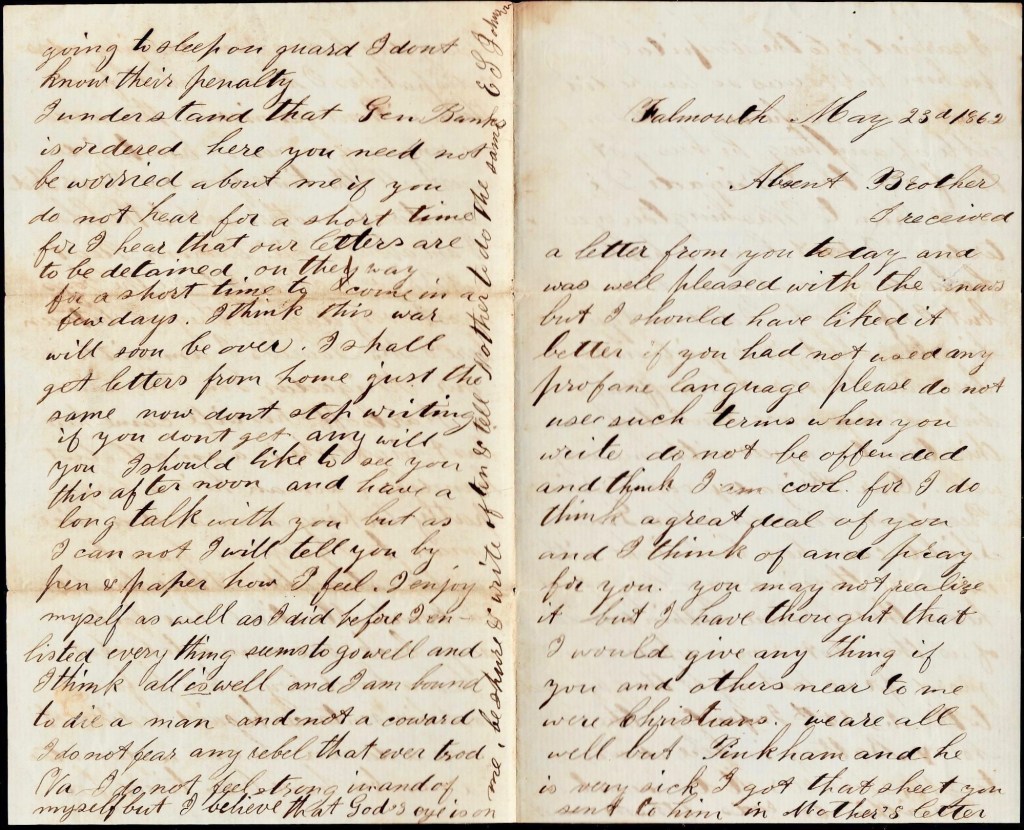 Falmouth May 23d 1862
Absent Brother
I received
a letter from you to day and
was well pleased with the news
but I should have liked it
better if you had not used any
profane language please do not
use such terms when you
write do not be offended
and think I am cool. for I do
think a great deal of you
and I think of and pray
for you. you may not realize
it but I have thought that
I would give any thing if
you and others near to me
were Christians. we are all
well but Pinkham and he
is very sick I got that sheet you
sent to him in Mother's letter
going to sleep on guard I dont
know their penalty
I understand that Gen Banks
is ordered here you need not
be worried about me if you
do not hear for a short time
for I hear that our letters are
to be detained on the way
for a short time to come in a
few days. I think this war
will soon be over. I shall
get letters from home just the
same now dont stop writing
if you dont get any will
you I should like to see you
this after noon and have a
long talk with you but as
I can not I will tell you by
pen & paper how I feel. I enjoy
myself as well as I did before I en-
listed every thing seems to go well and
I think all is well and I am bound
to die a man and not a coward
I do not fear any rebel that ever trod
Va I do not feel strong in and of
myself but I believe that God's eye is on
me, be shure & write often & tell Mother to do the same E S Johnson